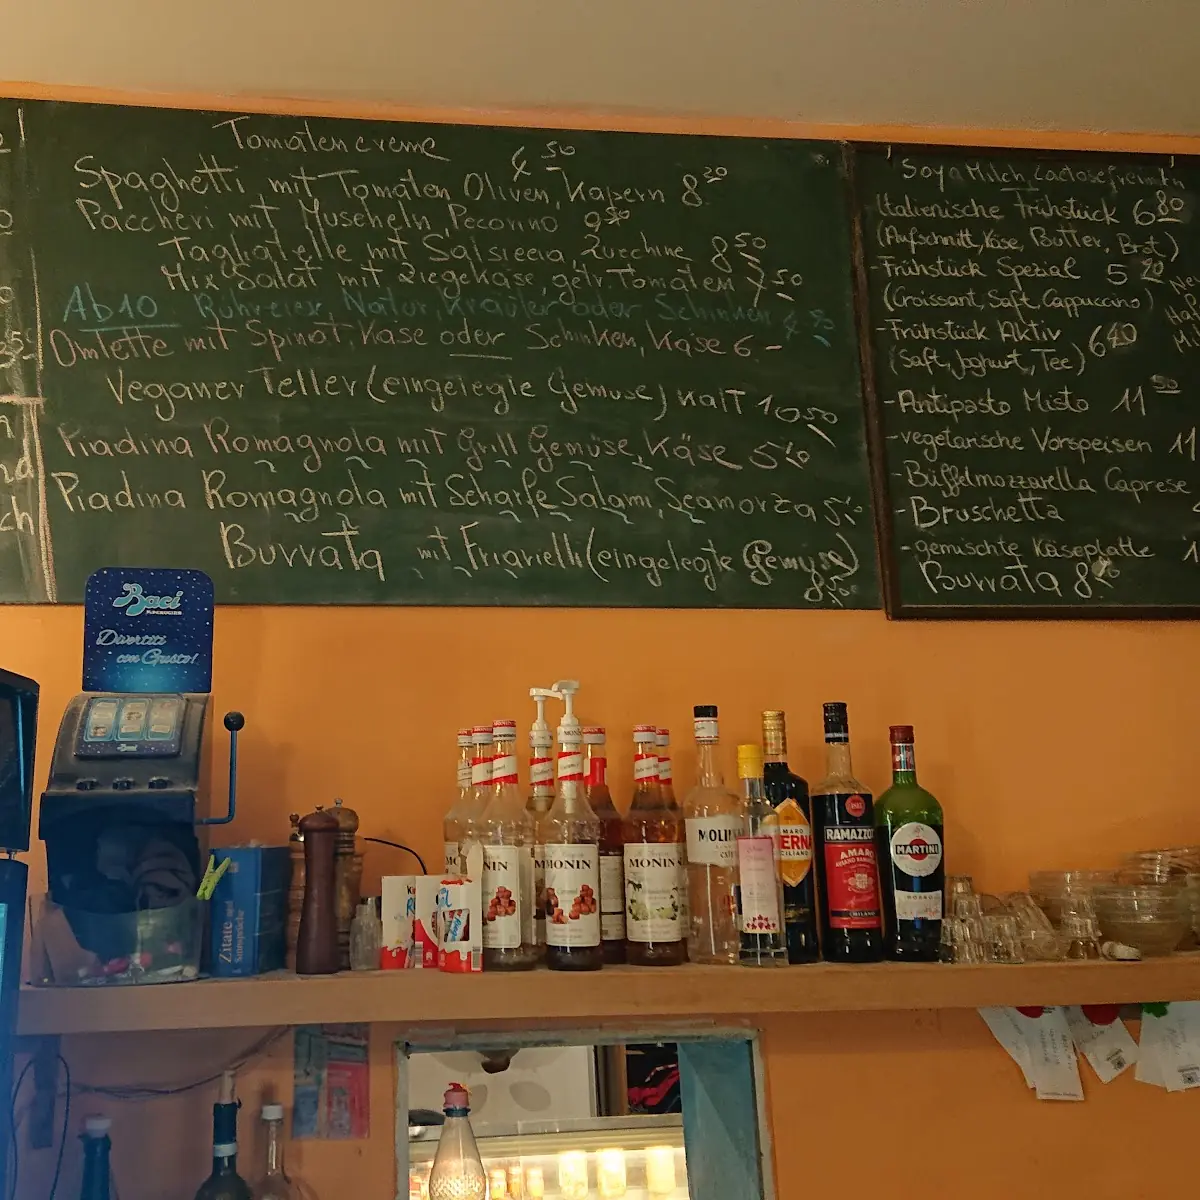 Tomatencreme 4 50
Spaghetti mit Tomaten, Oliven, Kapern 8 20
Paccheri mit Muscheln, Pecorino 9 50
Tagliatelle mit Salsiccia, Zucchine 8 50
Mix Salat mit Ziegekäse, getr. Tomaten 7 50
Ab 10 Rühreier Natur, Kräuter oder Schinken 4 50
Omlette mit Spinat, Käse oder Schinken, Käse 6.-
Veganer Teller (eingelegte Gemüse) kalt 10 50
Piadina Romagnola mit Grill Gemüse, Käse 5
Piadina Romagnola mit Scharfe Salami, Scamorza 5
Burrata mit Friarielli (eingelegte Gemüse)
8
Soya Milch, Lactosefreimilch
Italienische Frühstück 6 80
(Aufschnitt, Käse, Butter, Brot)
-Frühstück Spezial 5 20
(Croissant, Saft, Cappuccino)
-Frühstück Aktiv 6 40
(Saft, Joghurt, Tee)
-Antipasto Misto 11 50
-vegetarische Vorspeisen 11
-Büffelmozzarella Caprese
-Bruschetta
-gemischte Käseplatte
Burrata 8
Baci
Divertiti
con Gusto!
Zitate und
MONIN
MONIN
MONIN
MOLIN
AMARO
SICILIANO
RAMAZZOTTI
AMARO
MILANO
MARTINI